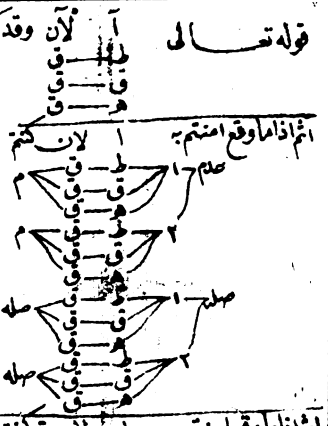 قوله تعالى آ لآن وقد
ط ق
ق ق
ه ق
اثم اذا ما وقع امنتم به آ لان كنتم
عدم ١ ط ق م
ق ق
ه ق
٢ ط ق م
ق ق
ه ق
صله ١ ط ق صله
ق ق
ه ق
٢ ط ق صله
ق ق
ه ق